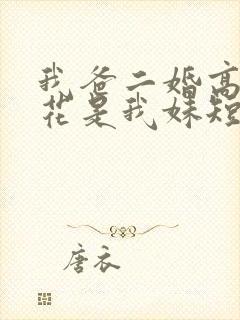 我爸二婚高
花是我妹短
唐衣